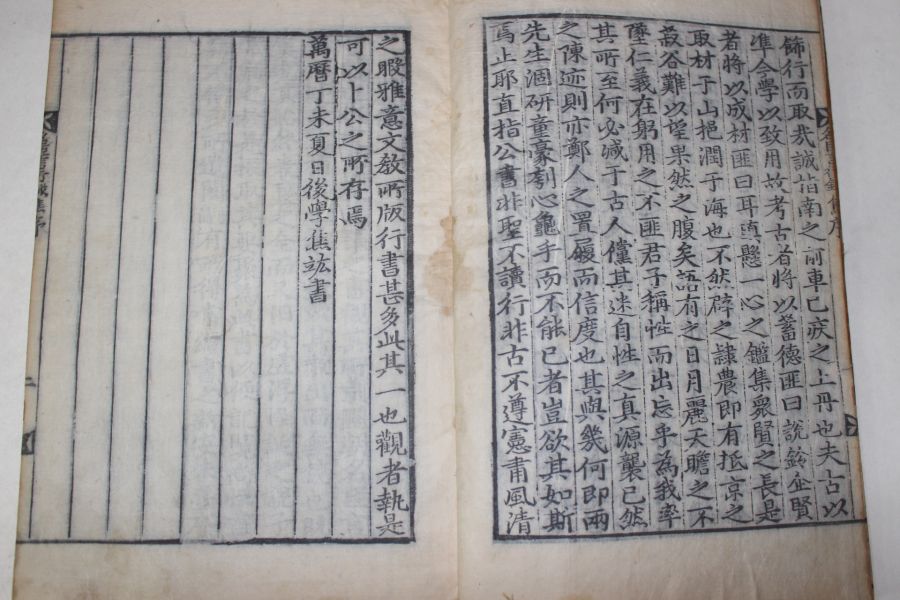 飾行而取哉誠指南之前車已疾之上丹也夫古以
准今學以致用故考古者將以蓄德匪曰說鈴企賢
者將以成材匪曰耳瑱懸一心之鑑集眾賢之長是
取材于山挹潤于海也不然辟之隷農即有抵京之
穀谷難以望果然之腹矣語有之日月麗天瞻之不
墜仁義在躬用之不匱君子稱性而出忘乎為我率
其所至何必減于古人儻其迷自性之真源襲已然
之陳迹則亦鄭人之置履而信度也其與幾何即兩
先生涸研童豪剔心龜手而不能已者豈欲其如斯
焉止耶直指公書非聖不讀行非古不遵憲肅風清
之暇雅意文教所版行書甚多此其一也觀者執是
可以卜公之所存焉
萬曆丁未夏日後學焦竑書